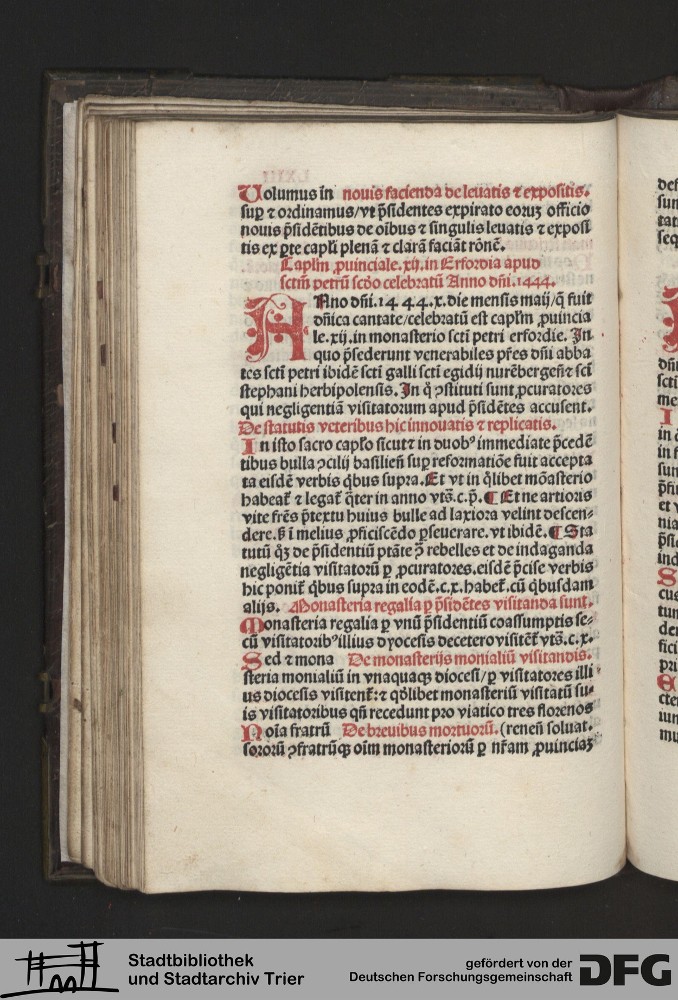 Volumus in nouis facienda de leuatis ⁊ expositis.
suꝑ ⁊ ordinamus/vt p̃sidentes expirato eoruꝫ officio
nouis p̃sidētibus de oībus ⁊ singulis leuatis ⁊ exposi
tis ex ꝑte capl̓i plenā ⁊ clarā faciāt rōnē.
Capl̓m ꝓuinciale.xij.in Erfordia apud
sctm̄ petrū scd̓o celebratū Anno dñi.1444.
ANno dñi.1444.x.die mensis maij/q̄ fuit
dñica cantate/celebratū est capl̓m ꝓuincia
le.xij.in monasterio scti petri erfordie. In
quo p̃sederunt venerabiles pr̄es dñi abba
tes scti petri ibidē scti galli scti egidij nurēbergeñ ⁊ sci
stephani herbipolensis. In q̊ ꝯstituti sunt ꝓcuratores
qui negligentiā visitatorum apud p̃sidētes accusent.
De statutis veteribus hic innouatis ⁊ replicatis.
In isto sacro capl̓o sicut ⁊ in duobꝰ immediate p̃cedē
tibus bulla ꝯcilij basilieñ suꝑ reformatiōe fuit accepta
ta eisdē verbis qͥbus supra. Et vt in qͦlibet mōasterio
habeat̃ ⁊ legat̃ qͣter in anno vts̄.c.p̃. ¶ Et ne artioris
vite fr̄es p̃textu huius bulle ad laxiora velint descen⸗
dere.ſꝫ ī melius ꝓficiscēdo ꝑseuerare.vt ibidē. ¶ Sta
tutū qͦꝫ de p̃sidentiū ptāte ꝯ̄ rebelles et de indaganda
negligētia visitatorū ꝑ ꝓcuratores.eisdē p̃cise verbis
hic ponit̃ qͥbus supra in eodē.c.x.habet̃.cū qͥbusdam
alijs. Monasteria regalia ꝑ p̃sidētes visitanda sunt.
Monasteria regalia ꝑ vnū p̃sidentiū coassumptis se⸗
cū visitatoribꝰ illius dyocesis decetero visitēt̃ vts̄.c.x.
Sed ⁊ mona De monasterijs monialiū visitandis.
steria monialiū in vnaquaqꝫ diocesi/ꝑ visitatores illi
us diocesis visitent̃:⁊ qd̓libet monasteriū visitatū su⸗
is visitatoribus qn̄ recedunt pro viatico tres florenos
Noīa fratrū De breuibus mortuorū. (reneñ soluat.
sororū ꝯfratrūqꝫ oīm monasteriorū ꝑ nr̄am ꝓuinciaꝫ
Stadtbibliothek
und Stadtarchiv Trier
gefördert von der
Deutschen Forschungsgemeinschaft
DFG